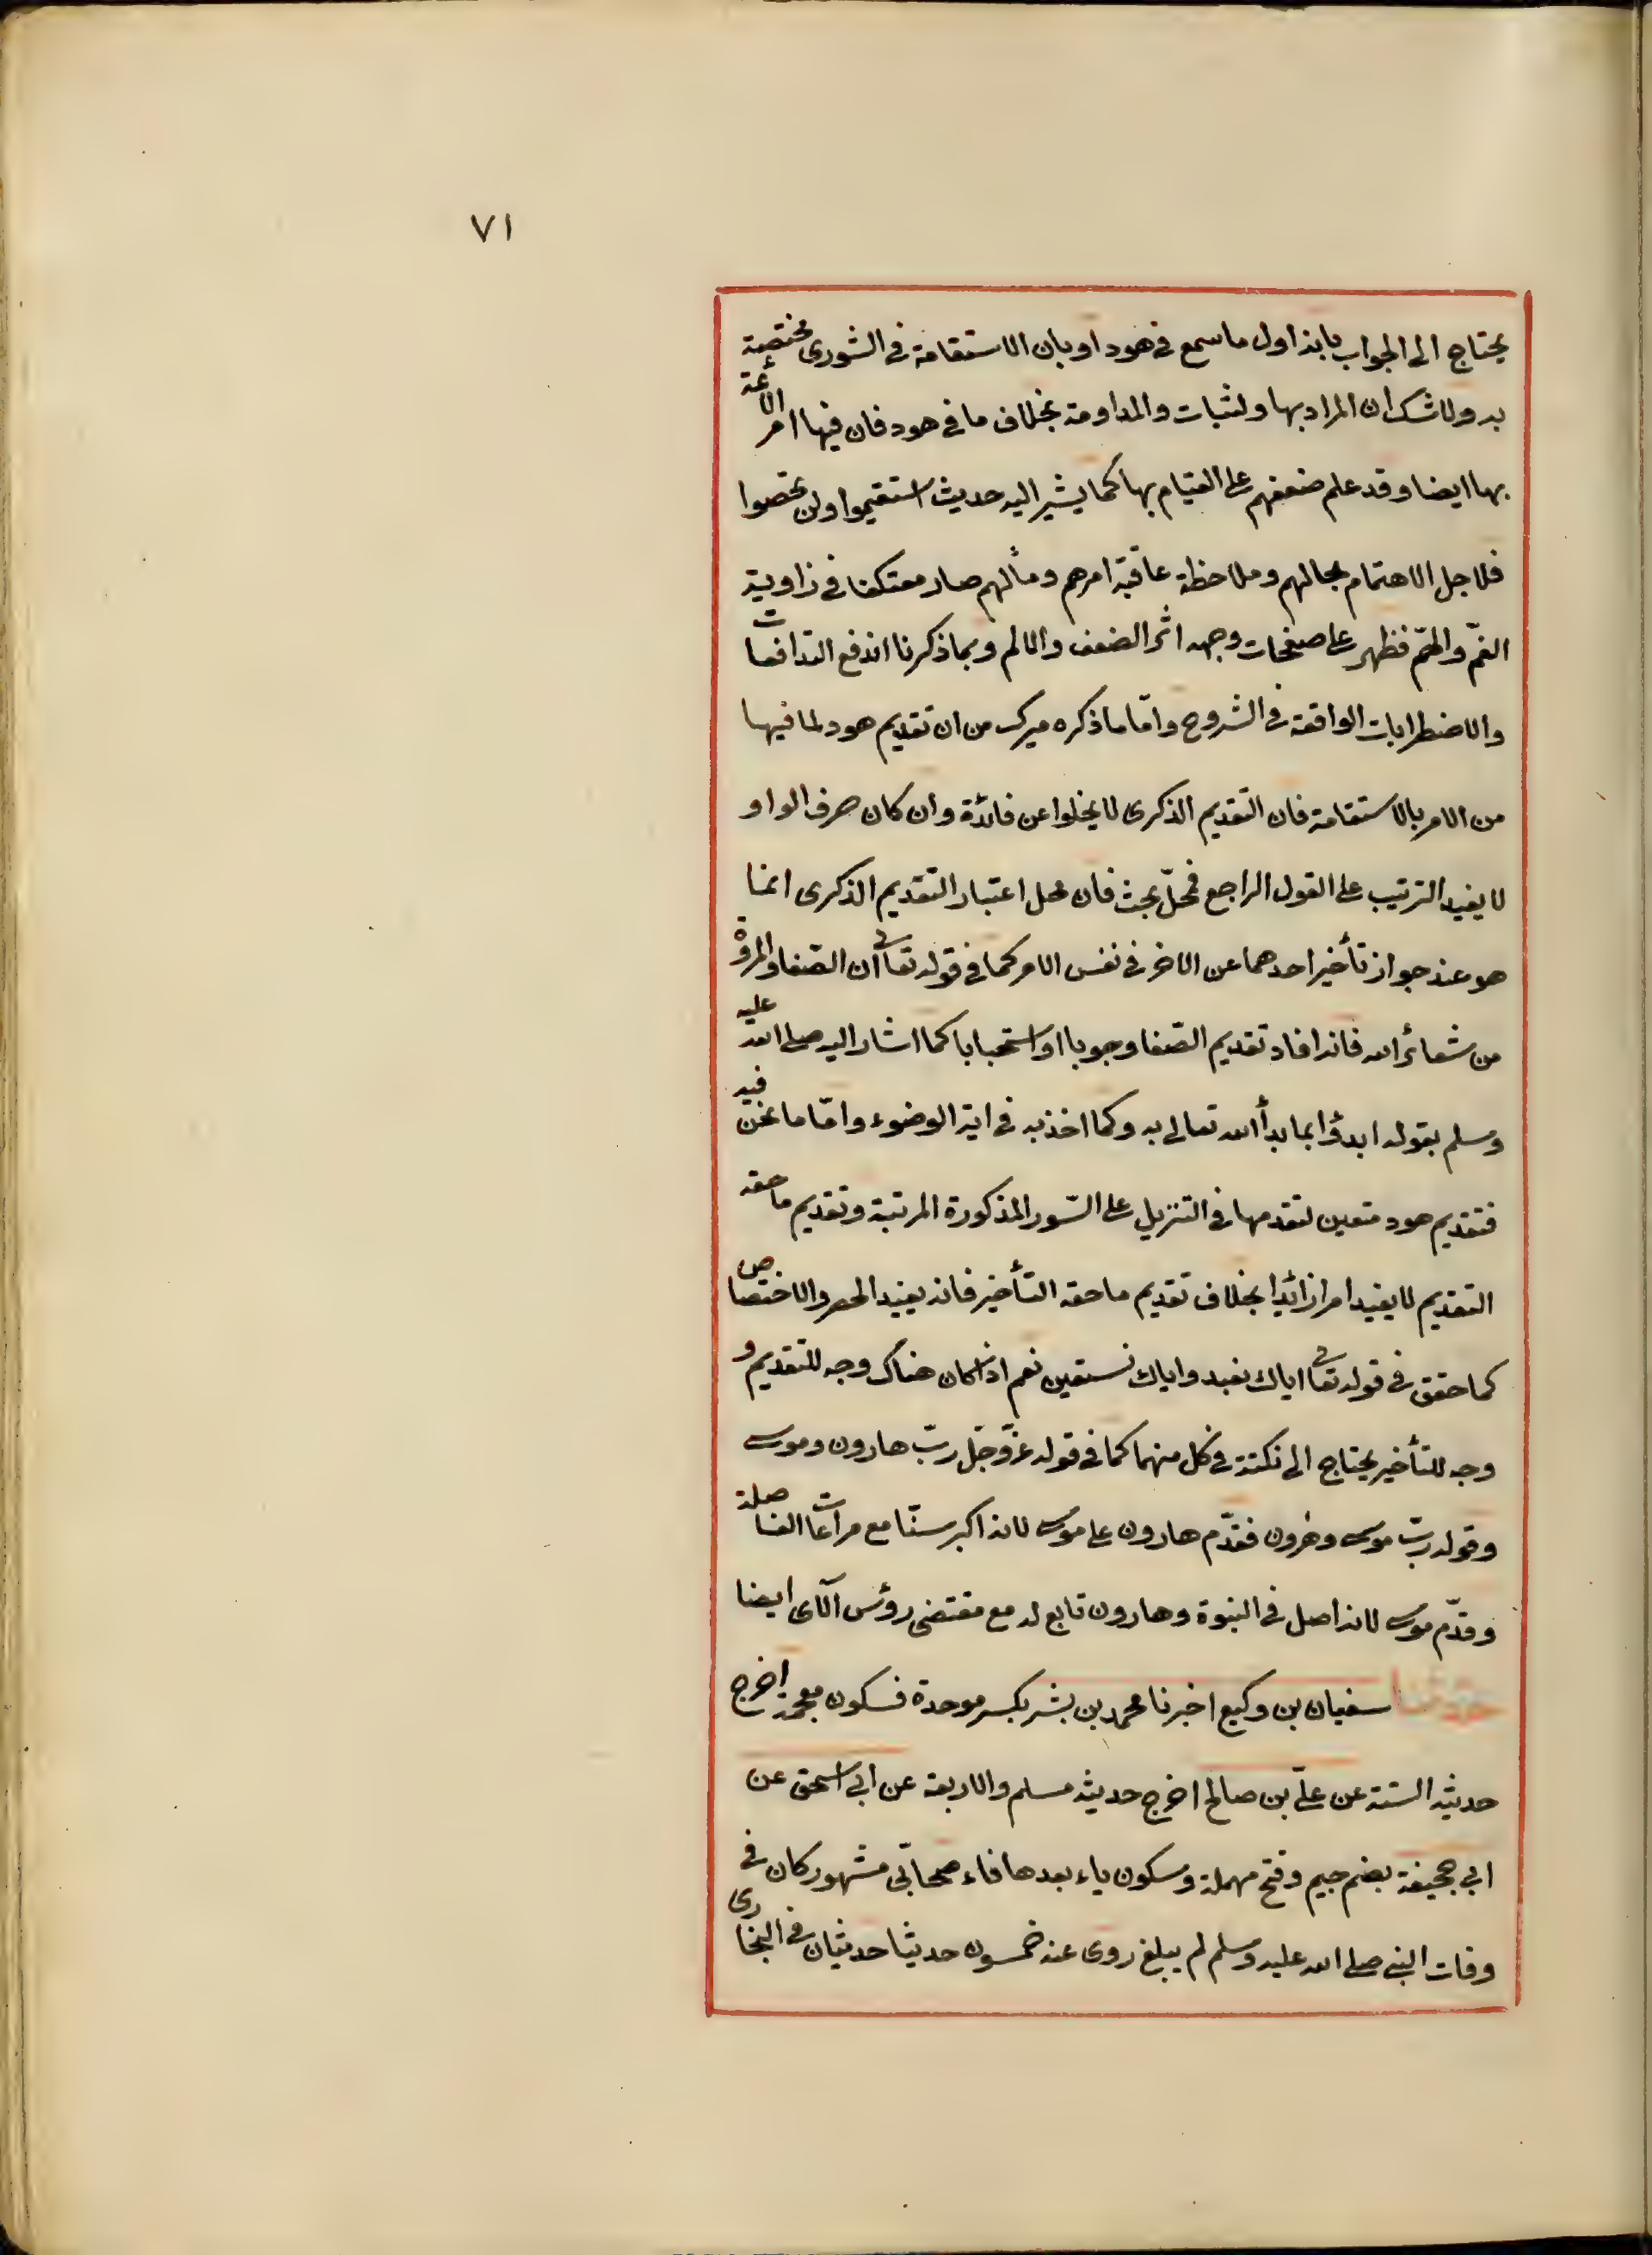 ٧١
يحتاج الى الجواب بانه اول ما سمع فى هود او بان الاستقامة فى الشورى مختصة
به ولا شك ان المراد بها ولثبات والمداومة بخلاف ما فى هود فان فيها امر الأمة
بها ايضا وقد علم ضعفهم على القيام بها كما يشير اليه حديث استقيموا ولن تحصوا
فلاجل الاهتمام بحالهم وملاحظة عاقبة امرهم ومألهم صار معتكفا فى زاوية
الغمّ والهمّ فظهر على صفحات وجهه اثر الضعف والالم وبما ذكرنا اندفع التدافعات
والاضطرابات الواقعة فى الشروح وامّا ما ذكره ميرك من ان تقديم هود لما فيها
من الامر بالاستقامة فان التّقديم الذكرى لا يخلوا عن فائدة وان كان حرف الواو
لا يفيد الترتيب على القول الراجع فمحلّ بحث فان محل اعتبار التّقديم الذكرى انما
هو عند جواز تأخير احدهما عن الاخر فى نفس الامر كما فى قوله تعالى ان الصّفا والمروة
من شعائر الله فانه افاد تقديم الصّفا وجوبا او استحبابا كما اشار اليه صلى الله عليه
وسلم بقوله ابدؤا بما بدأ الله تعالى به وكما اخذ به فى اية الوضوء وامّا ما نحن فيه
فتقديم هود متعين لتقدمها فى التنزيل على السّور المذكورة المرتبة وتقديم ما حقه
التقديم لا يفيد امرا زائدا بخلاف تقديم ما حقه التأخير فانه يفيد الحصر والاختصاص
كما حقق فى قوله تعالى اياك نعبد واياك نستعين نعم اذا كان هناك وجه للتقديم و
وجه للتأخير يحتاج الى نكتة فى كل منهما كما فى قوله عزّ وجلّ ربّ هارون وموسى
وقوله ربّ موسى وهرون فقدّم هارون على موسى لانه اكبر سنّا مع مراعات الفاصلة
وقدّم موسى لانه اصل فى النبوة وهارون تابع له مع مقتضى رؤس الآى ايضا
حدثنا سفيان بن وكيع اخبرنا محمد بن بشر بكسر موحدة فسكون معجمة اخرج
حديثه الستة عن علىّ بن صالح اخرج حديثه مسلم والاربعة عن ابى اسحق عن
ابى جحيفة بضم جيم وفتح مهملة وسكون ياء بعدها فاء صحابّى مشهور كان فى
وفات النبى صلى الله عليه وسلم لم يبلغ روى عنه خمسون حديثا حديثان فى البخارى